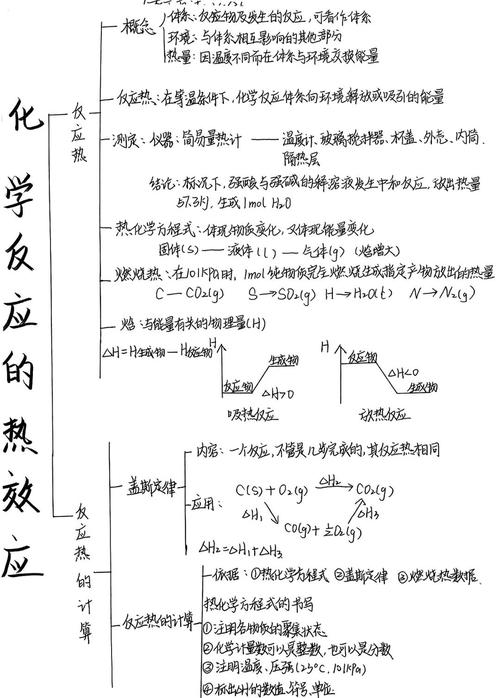 化学反应的热效应
反应热
概念
体系：反应物及发生的反应，可看作体系
环境：与体系相互影响的其他部分
热量：因温度不同而在体系与环境交换能量
反应热：在等温条件下，化学反应体系向环境释放或吸引的能量
测定：仪器：简易量热计 —— 温度计、玻璃搅拌器、杯盖、外壳、内筒、
隔热层
结论：标况下，强酸与强碱的稀溶液发生中和反应，放出热量
57.3kJ，生成1mol H₂O
热化学方程式：体现物质变化，又体现能量变化
固体(s) —— 液体(l) —— 气体(g) (焓增大)
燃烧热：在101kPa时，1mol纯物质完全燃烧生成指定产物放出的热量
C — CO₂(g) S→SO₂(g) H→H₂O(l) N→N₂(g)
焓：与能量有关的物理量(H)
△H=H生成物—H反应物
H
反应物
生成物
△H>0
吸热反应
H
反应物
△H<0
生成物
放热反应
反应热的计算
盖斯定律
内容：一个反应，不管是几步完成的，其反应热相同
应用：
C(s)+O₂(g) △H₂ CO₂(g)
△H₁ △H₃
CO(g)+½O₂(g)
△H₂=△H₁+△H₃
反应热的计算
依据：①热化学方程式 ②盖斯定律 ③燃烧热数据
热化学方程式的书写
①注明各物质的聚集状态
②化学计量数可以是整数，也可以是分数
③注明温度、压强(25°C，101kPa)
④标出△H的数值、符号、单位